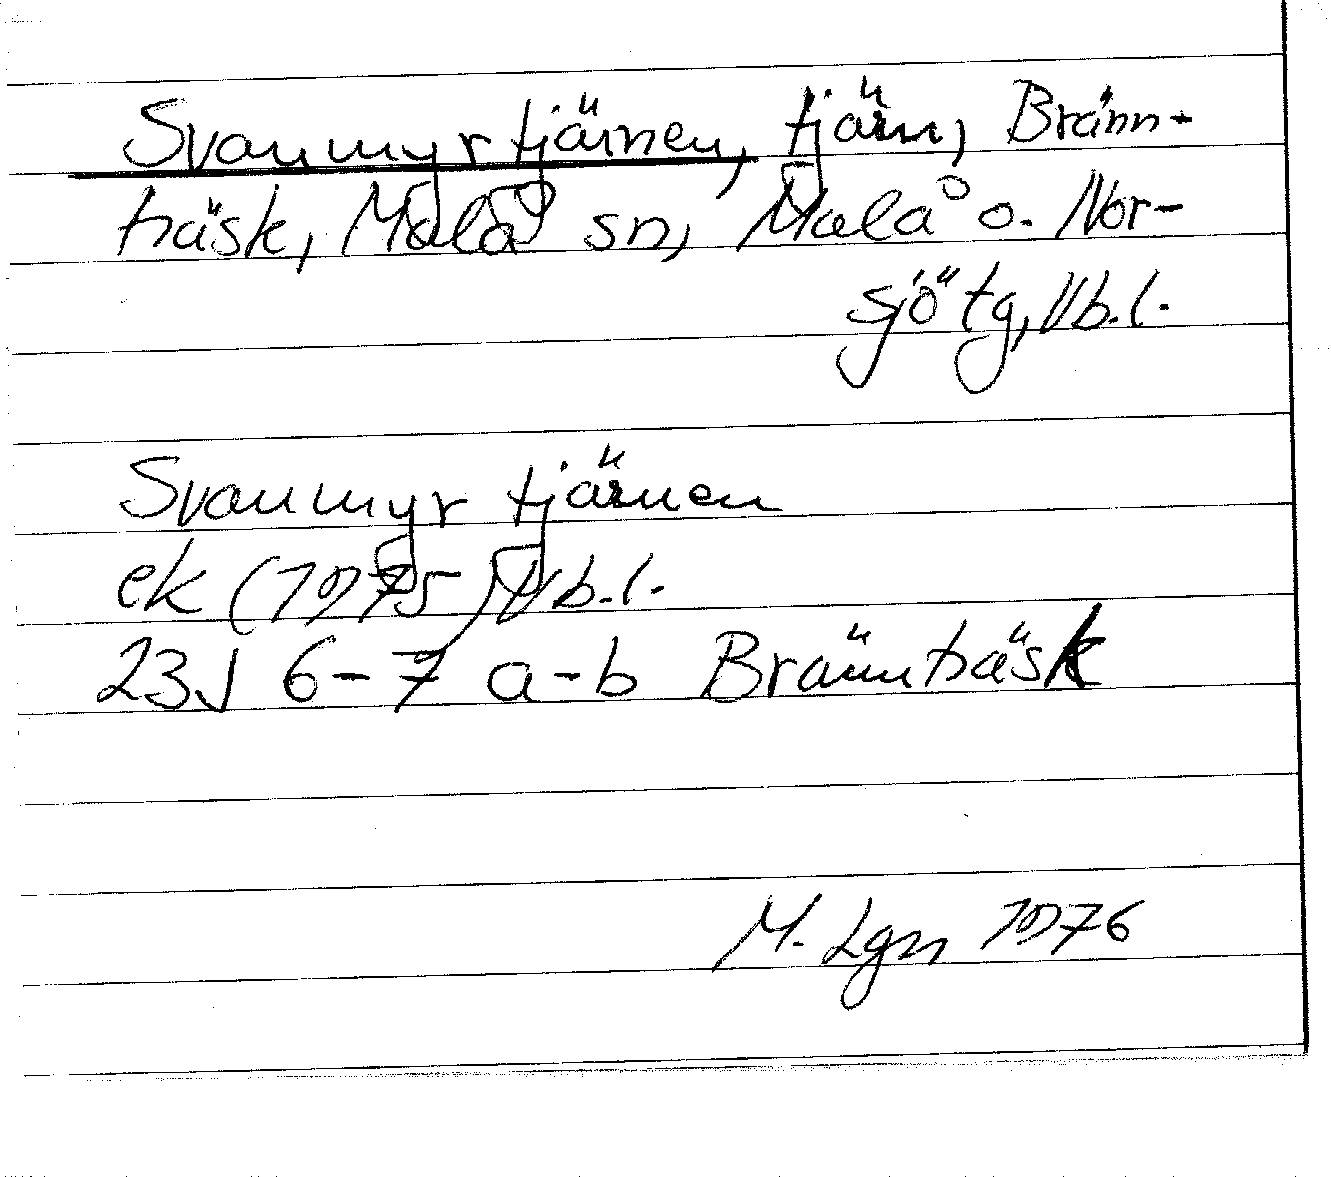 Svanmyrtjärnen, tjärn, Bränn-
träsk, Malå sn, Malå o. Nor-
sjö tg, Vb.l.
Svanmyrtjärnen
ek (1975) Vb.l.
23J 6-7 a-b Brännträsk
M. Lgn 1976